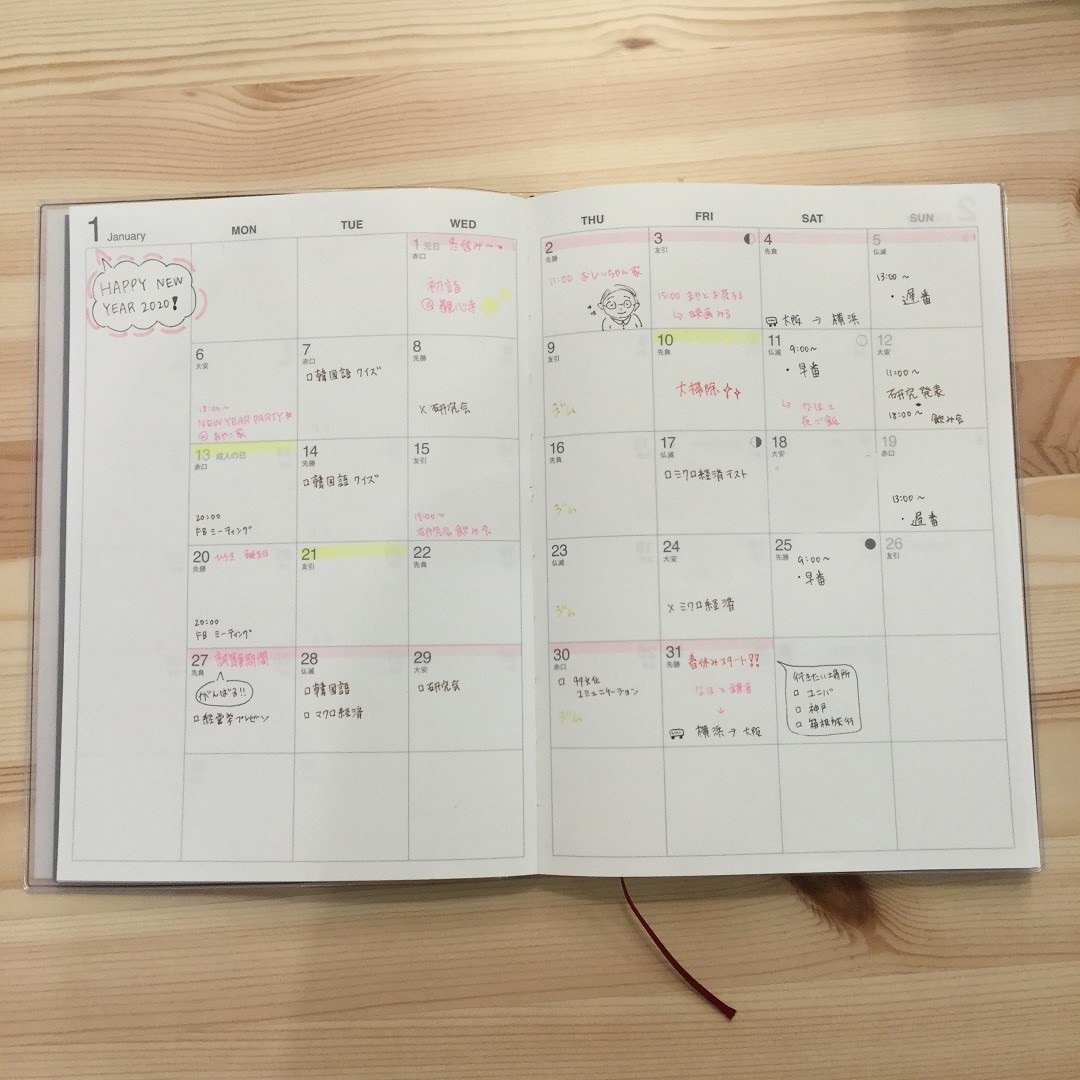 1 January
MON TUE WED THU FRI SAT SUN
HAPPY NEW
YEAR 2020!
1 元日
赤口
初詣
観心寺
2
先勝
11:00 おじいちゃん家
3
友引
15:00 あやとお茶する
↳ 映画みる
4
先負
大阪 → 横浜
5
仏滅
13:00 ~
・遅番
6
大安
18:00 ~
NEW YEAR PARTY
@ あやこ家
7
赤口
□ 韓国語 クイズ
8
先勝
× 研究会
9
友引
ジム
10
先負
大掃除
11
仏滅
9:00~
・早番
↳ なほと
夜ご飯
12
大安
11:00 ~
研究発表
18:00 ~ 飲み会
13 成人の日
赤口
20:00
FB ミーティング
14
先勝
□ 韓国語 クイズ
15
友引
19:00 ~
研究会 飲み会
16
先負
ジム
17
仏滅
□ ミクロ経済テスト
18
大安
19
赤口
13:00 ~
・遅番
20 誕生日
先勝
20:00
FB ミーティング
21
友引
22
先負
23
仏滅
ジム
24
大安
× ミクロ経済
25
先勝
9:00~
・早番
26
友引
27 試験期間
先負
がんばる!!
□ 経営学プレゼン
28
仏滅
□ 韓国語
□ マクロ経済
29
大安
□ 研究会
30
赤口
□ 異文化
コミュニケーション
ジム
31
先勝
春休みスタート??
なほと鎌倉
↓
横浜 → 大阪
行きたい場所
□ ユニバ
□ 神戸
□ 箱根旅行